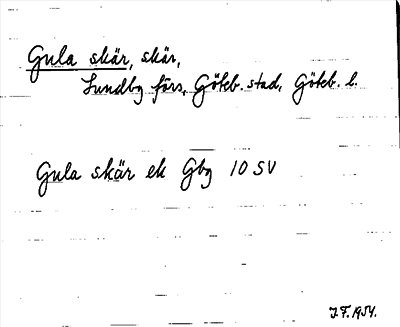 Gula skär, skär,
Lundby förs, Göteb. stad, Göteb. l.
Gula skär ek Gbg 10 SV
J.F. 1954.